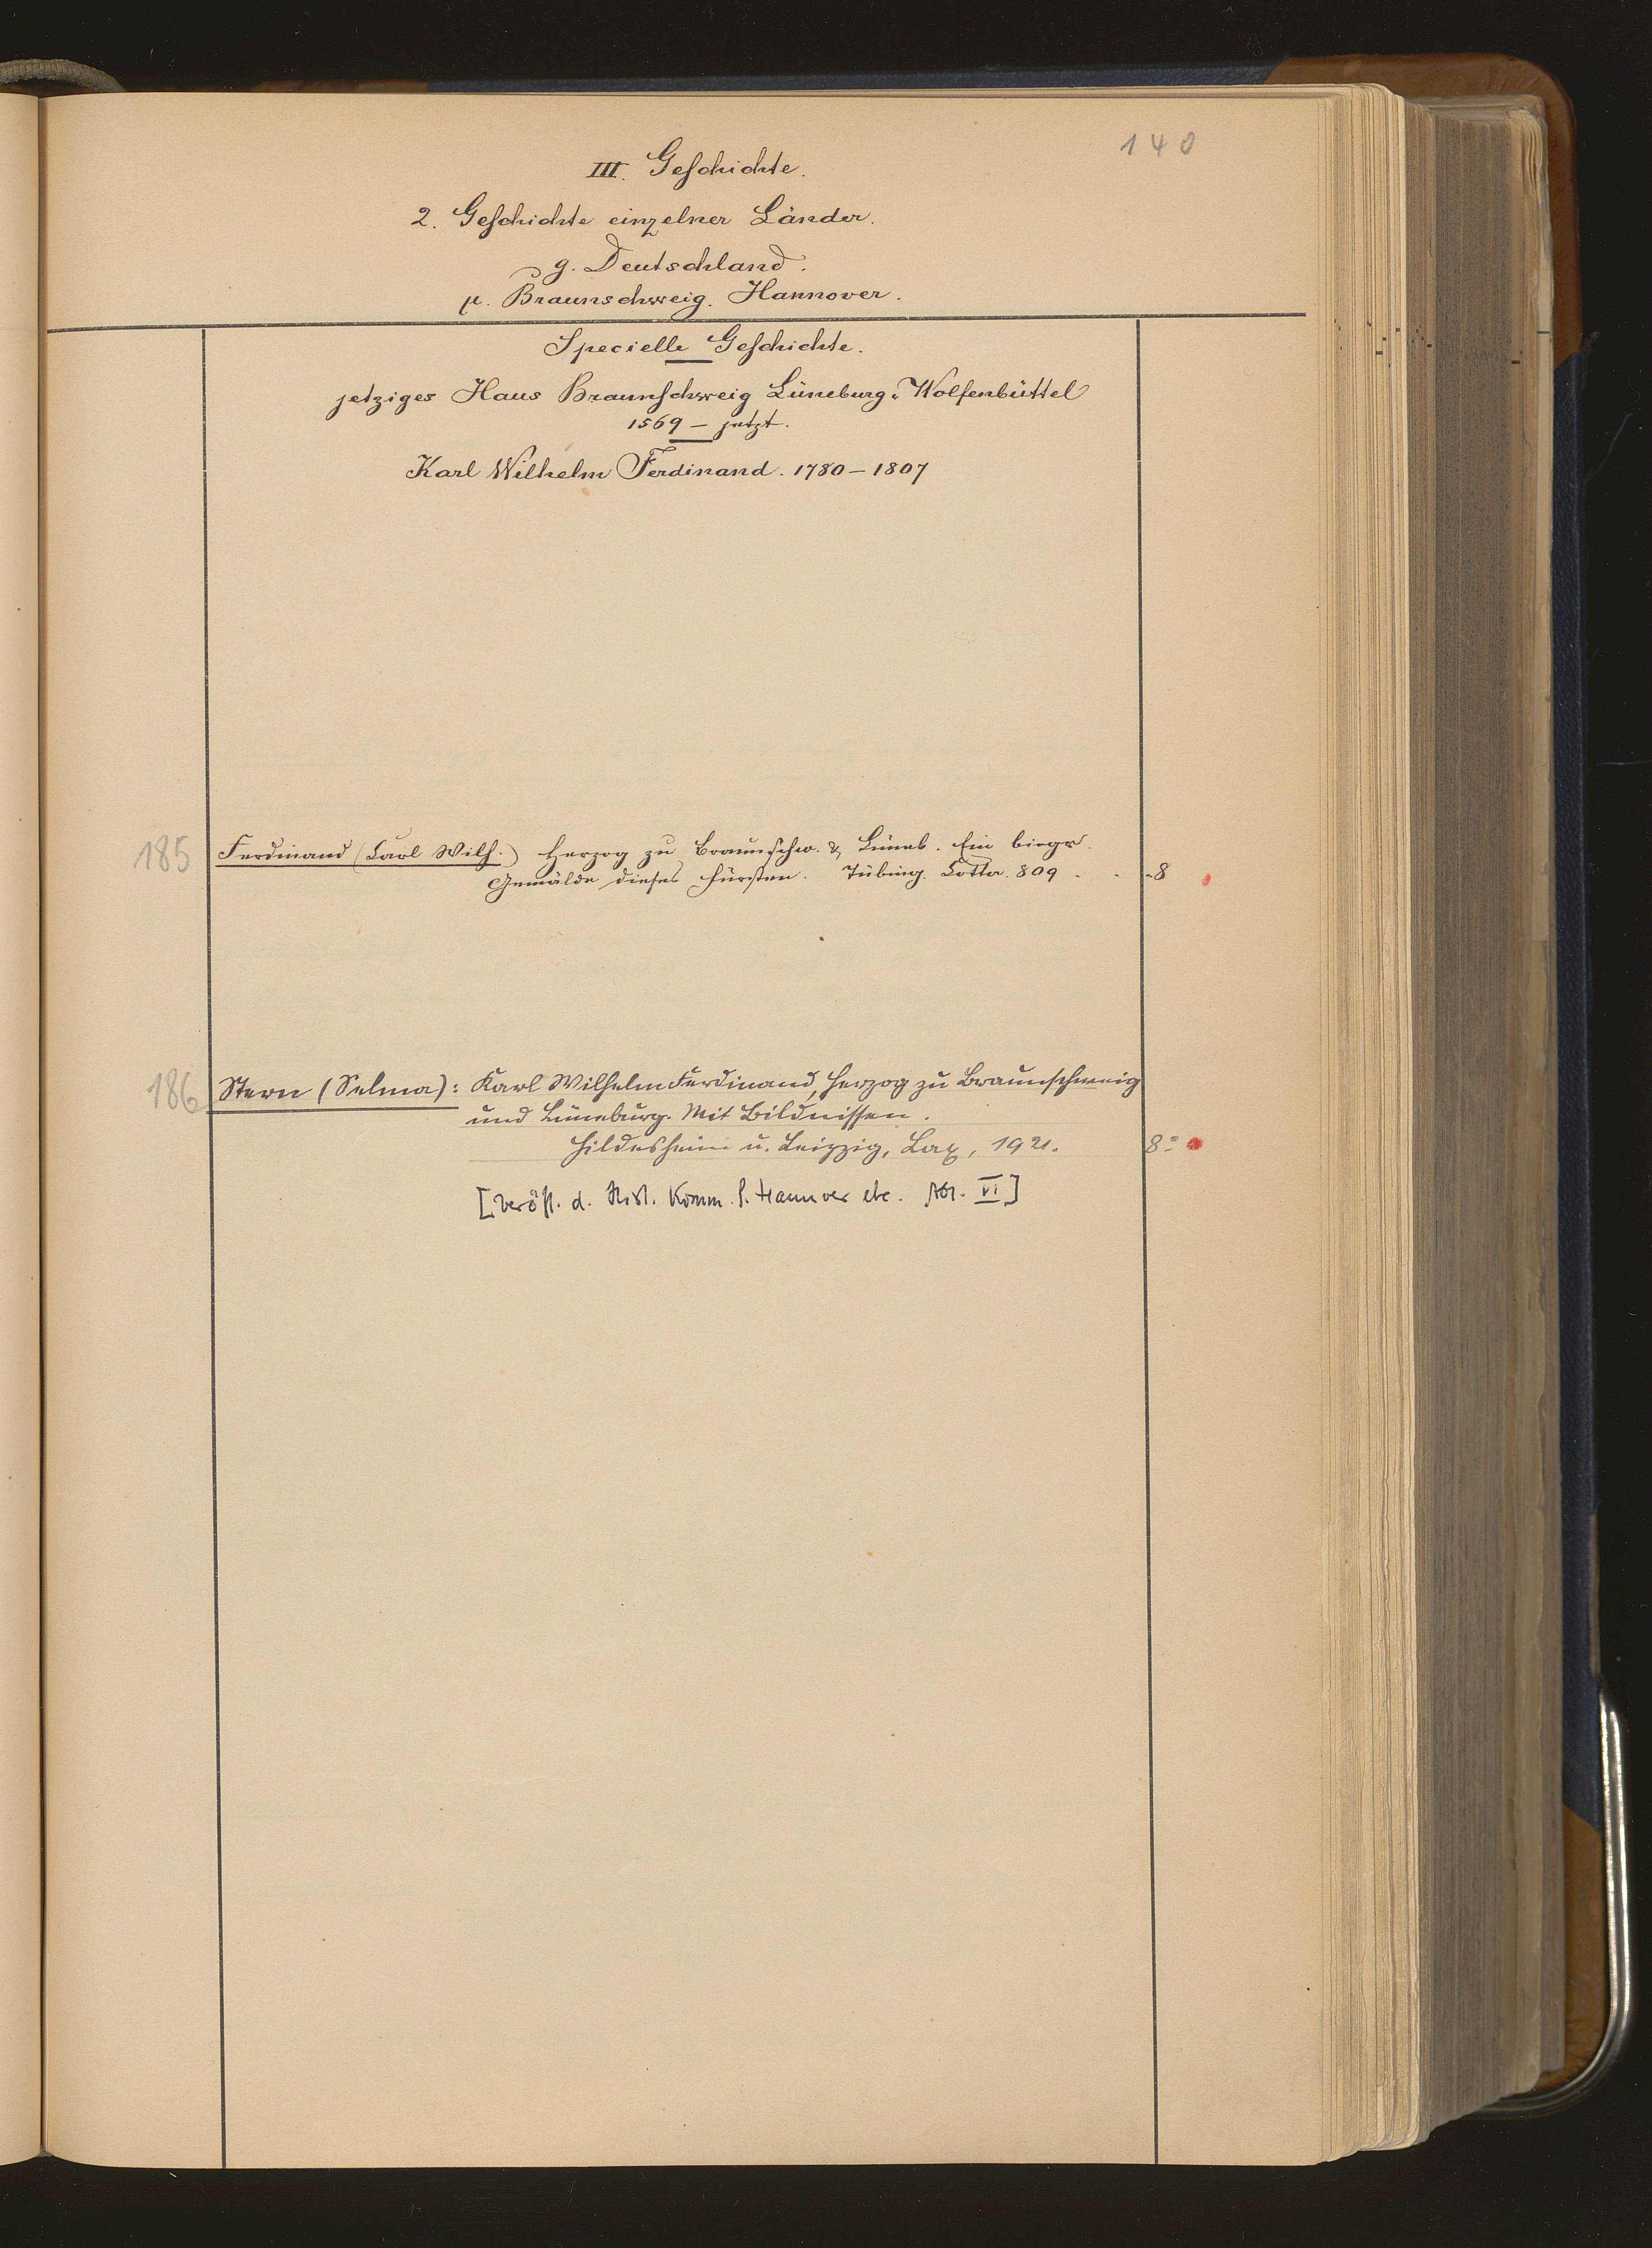 140
III. Geschichte.
2. Geschichte einzelner Länder.
g. Deutschland.
µ. Braunschweig. Hannover.
Specielle Geschichte.
jetziges Haus Braunschweig Lüneburg-Wolfenbüttel
1569 – jetzt.
Karl Wilhelm Ferdinand. 1780 – 1807
185 Ferdinand (Carl Wilh.) Herzog zu Braunschw. & Lüneb. Ein biogr.
Gemälde dieses Fürsten. Tübing. Cotta. 809 . . -8
186 Stern (Selma): Karl Wilhelm Ferdinand, Herzog zu Braunschweig
und Lüneburg. Mit Bildnissen.
Hildesheim u. Leipzig, Lax, 1921. 8°
[Veröff. d. Hist. Komm. f. Hannover etc. VI]